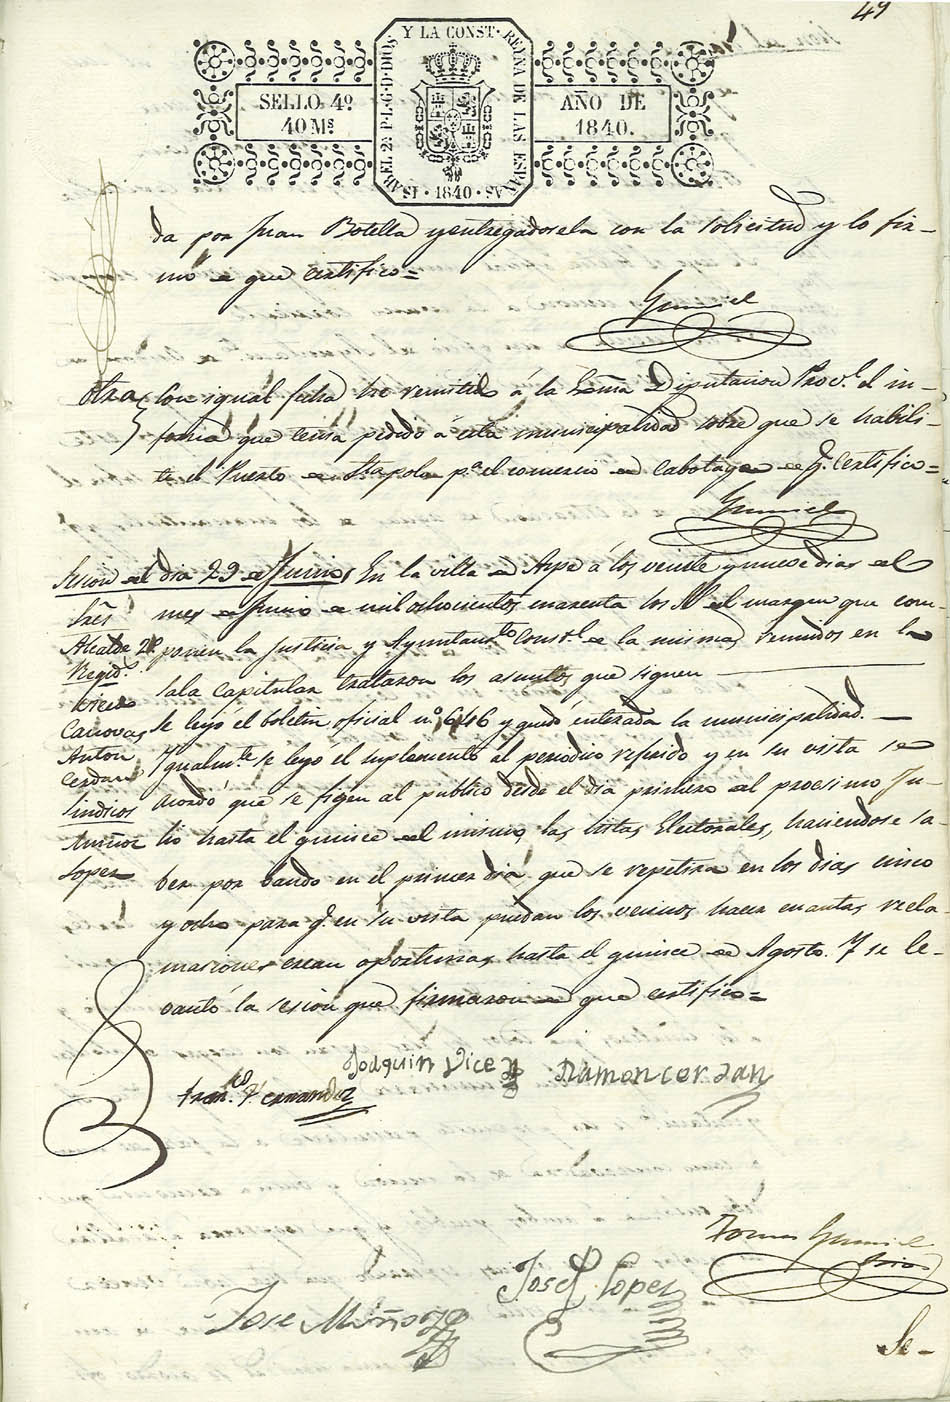 49
Y LA CONST. REYNA DE LAS ESPAÑAS
ISABEL 2ª P.L.G.D. DIOS
· 1840 ·
SELLO 4º
40 Ms
AÑO DE
1840.
da por Juan Botella y entregadosela con la solicitud y lo fir-
mó de que certifico =
Gumiel
Otra Con igual fecha he remitido á la Exma Diputacion Provl. el in-
forme que tenia pedido á esta municipalidad sobre que se habili-
te el Puerto de Sta pola pa. el comercio de Cabotage de q. certifico =
Gumiel
Sesion del dia 29 de Junio En la villa de Aspe á los veinte y nueve dias del
Sres mes de Junio de mil ochocientos cuarenta los SS. del margen que com-
Alcalde 2º ponen la Justicia y Ayuntamto. Constl. de la misma, reunidos en la
Regids. sala capitular trataron los asuntos que siguen
Vicedo
Canovas Se leyó el boletin oficial nº. 646 y quedó enterada la municipalidad.
Anton Ygualmte. se leyó el suplemento al periodico referido y en su vista se
Cerdan
Sindicos acordó que se fijen al publico desde el dia primero del procsimo Ju-
Muñoz lio hasta el quince del mismo, las listas Electorales, haciendose sa-
Lopez ber por bando en el primer dia que se repetira en los dias cinco
y ocho para q. en su vista puedan los vecinos hacer cuantas recla
maciones crean oportunas hasta el quince de Agosto. Y se le-
vantó la sesion que firmaron de que certifico =
Joaquin Vicedo
Ramon cerdan
Franco. Hernandez
Tomas Gumiel
Srio
Josef Lopez
Jose Muñoz
Se-